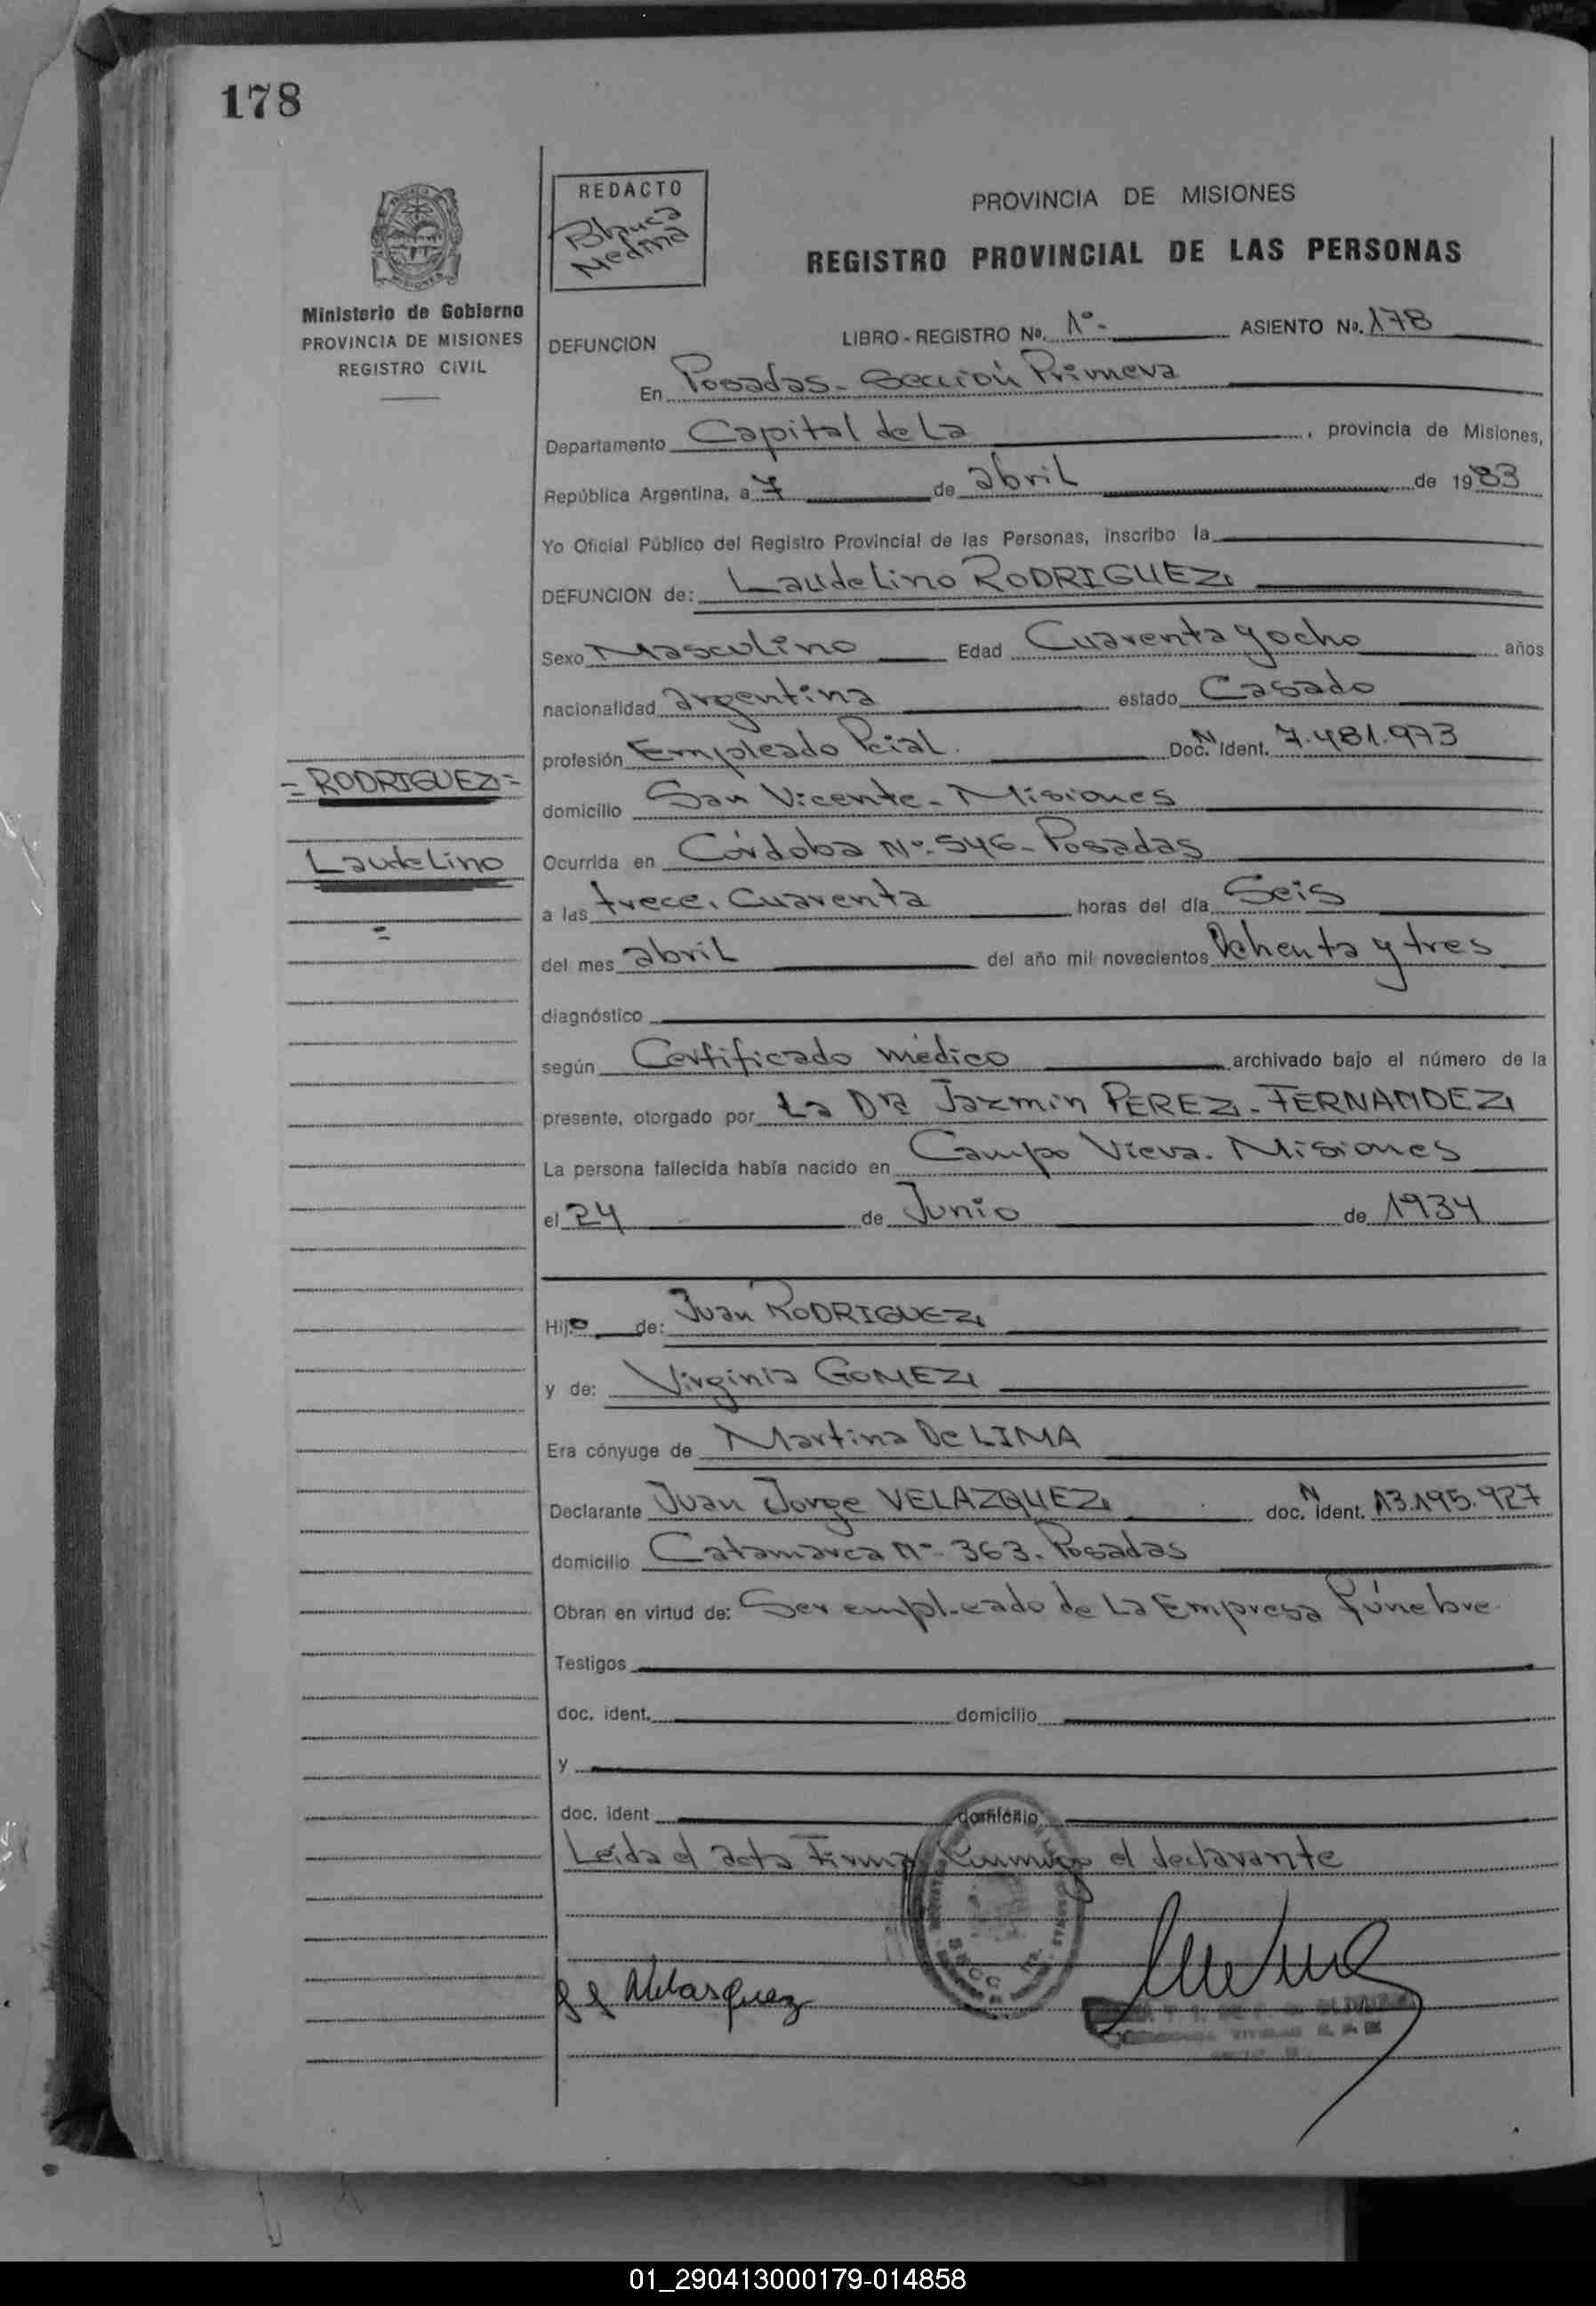 178
REDACTO
Blanca
Medina
PROVINCIA DE MISIONES
REGISTRO PROVINCIAL DE LAS PERSONAS
Ministerio de Gobierno
PROVINCIA DE MISIONES
REGISTRO CIVIL
DEFUNCION LIBRO - REGISTRO No. 1º- ASIENTO No. 178
En Posadas - Sección Primera
Departamento Capital de La , provincia de Misiones,
República Argentina, a 7 de abril de 1983
Yo Oficial Público del Registro Provincial de las Personas, inscribo la
DEFUNCION de: Laudelino RODRIGUEZ
Sexo Masculino Edad Cuarenta y ocho años
nacionalidad argentina estado Casado
profesión Empleado Pcial. Doc. N Ident. 7.481.973
domicilio San Vicente - Misiones
= RODRIGUEZ =
Laudelino
Ocurrida en Córdoba Nº 546 - Posadas
a las trece. Cuarenta horas del día Seis
del mes abril del año mil novecientos Ochenta y tres
diagnóstico
según Certificado médico archivado bajo el número de la
presente, otorgado por La Dra Jazmin PEREZ - FERNANDEZ
La persona fallecida había nacido en Campo Viera. Misiones
el 24 de Junio de 1934
Hijo de: Juan RODRIGUEZ
y de: Virginia GOMEZ
Era cónyuge de Martina De LIMA
Declarante Juan Jorge VELAZQUEZ doc. N ident. 13.195.927
domicilio Catamarca Nº 363. Posadas
Obran en virtud de: Ser empleado de La Empresa fúnebre
Testigos
doc. ident. domicilio
y
doc. ident domicilio
Leída el acta Firma Conmigo el declarante
Velasquez
SECC
01_290413000179-014858